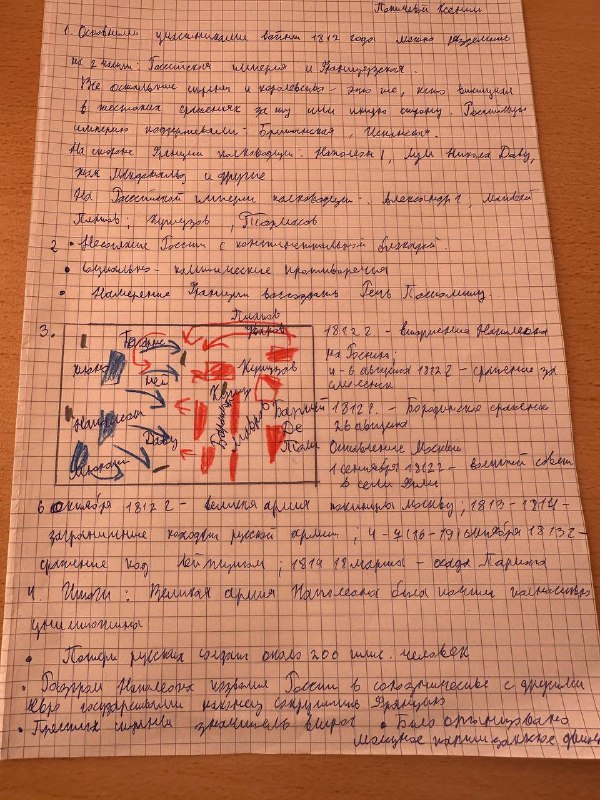 1. Основными участниками войны 1812 года можно разделить
на 2 : Российская империя и Французская.
Все остальные страны и королевства - это те, кого
в жестоких сражениях за ту или иную сторону. Российскую
империю поддерживали - Британская, Испанская.
На стороне Франции полководцы: Наполеон 1, Луи Никола Даву,
Жак Макдональд и другие
На Российской империи полководцы - Александр 1, Матвей
Платов; Кутузов, Тормасов
2 • Несогласие России с континентальной блокадой.
• Социально-политические противоречия
• Намерение Франции воссоздать Речь Посполиту.
3.
Платов
Уваров
Кутузов
Ней
Наполеон
Даву
Барклай
Де
Толли
1812 г - вторжение Наполеона
на Россию;
4-6 августа 1812 г - сражение за
Смоленск
1812 г. - Бородинское сражение
26 августа
Оставление Москвы
1 сентября 1812 г - военный совет
в селе Фили
6 октября 1812 г - великая армия покинула Москву; 1813-1814 -
заграничные походы русской армии; 4-7 (16-19) октября 1813 г -
сражение под Лейпцигом; 1814 18 марта - осада Парижа
4. Итоги: Великая армия Наполеона была почти полностью
уничтожена
• Потери русских солдат около 200 тыс. человек
• Разгром Наполеона позволил России в союзничестве с другими
евро государствами наконец сокрушить Францию
• Престиж страны вырос • Было организовано
мощное партизанское